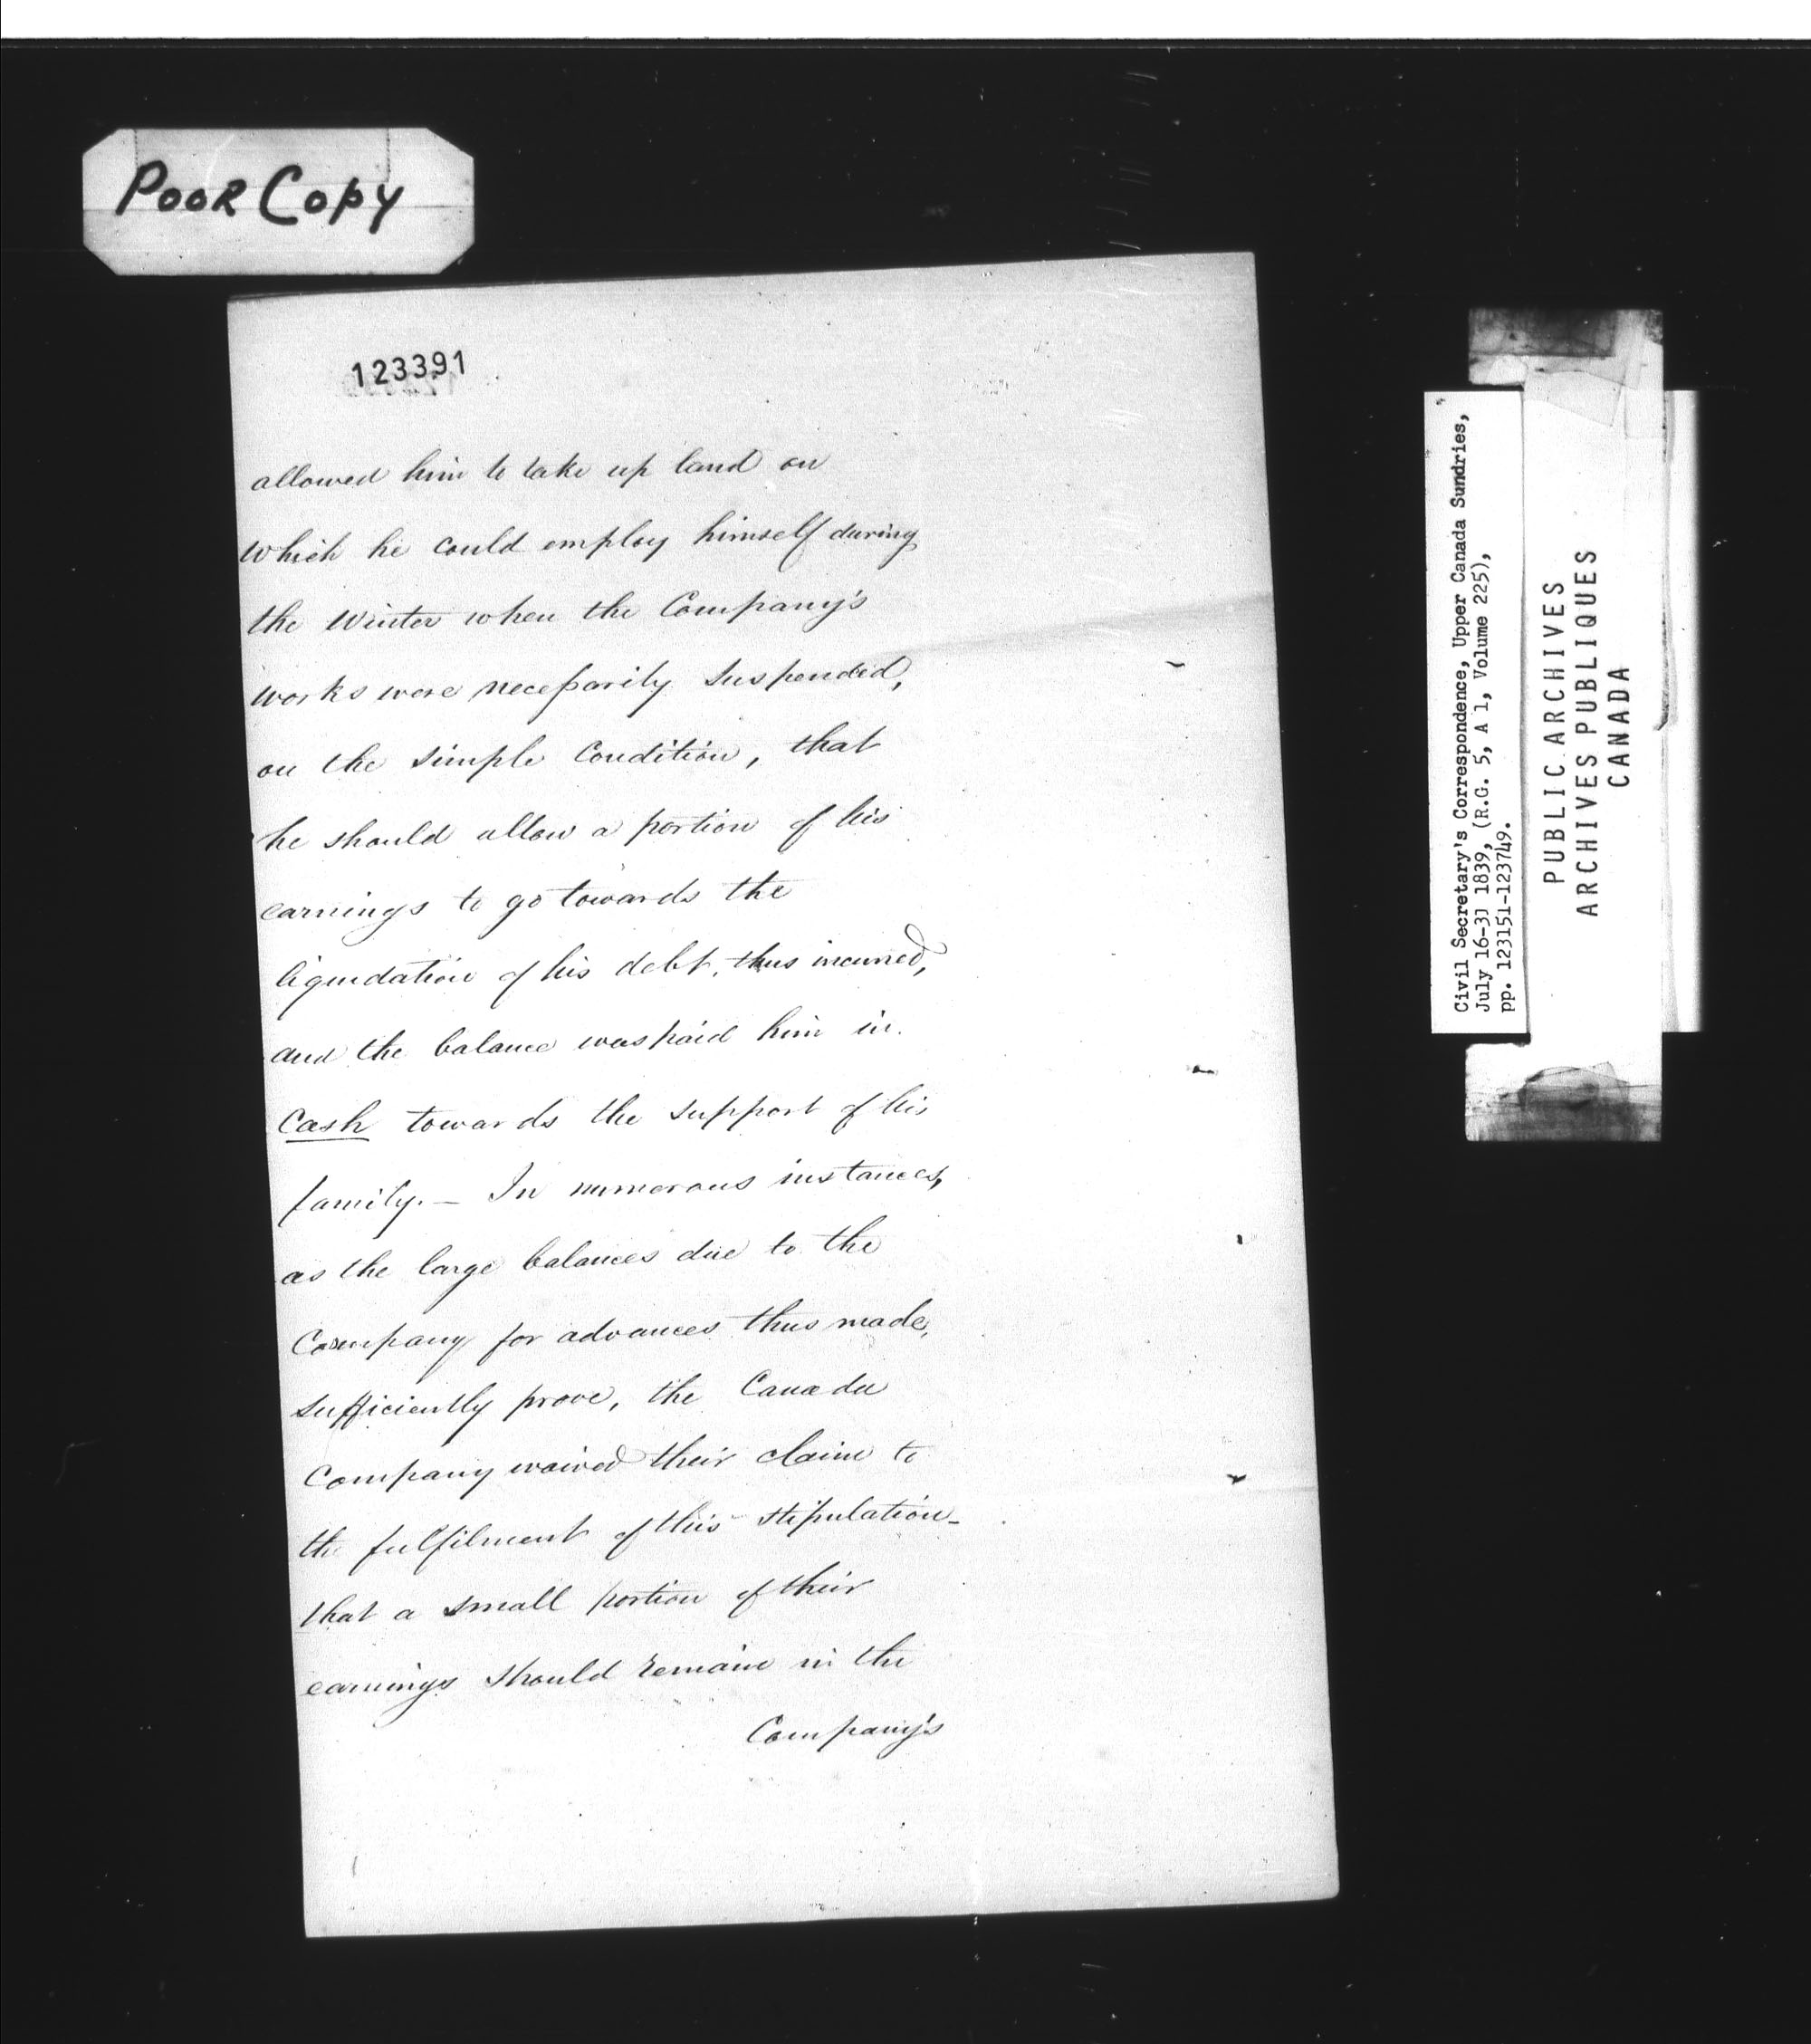 Poor Copy
123391
allowed him to take up land on
which he could employ himself during
the Winter when the Company's
works were necessarily suspended,
on the simple Condition, that
he should allow a portion of his
earnings to go towards the
liquidation of his debt, thus incurred,
and the balance was paid him in
Cash towards the support of his
family. — In numerous instances,
as the large balances due to the
Company for advances thus made,
sufficiently prove, the Canada
Company waived their claim to
the fulfilment of this stipulation -
that a small portion of their
earnings should remain in the
Company's
Civil Secretary's Correspondence, Upper Canada Sundries,
July 16-31 1839, (R.G. 5, A 1, Volume 225),
pp. 123151-123749.
PUBLIC ARCHIVES
ARCHIVES PUBLIQUES
CANADA